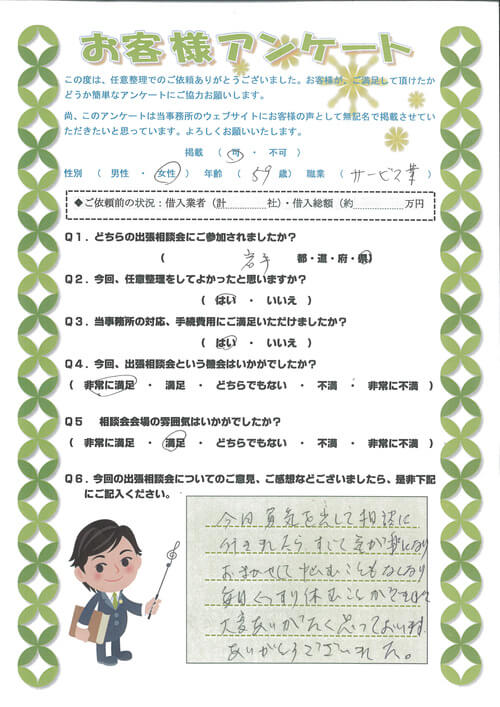 お客様アンケート
この度は、任意整理でのご依頼ありがとうございました。お客様が、ご満足して頂けたか
どうか簡単なアンケートにご協力お願いします。
尚、このアンケートは当事務所のウェブサイトにお客様の声として無記名で掲載させてい
ただきたいと思っています。よろしくお願いいたします。
掲載 （ 可 ・ 不可 ）
性別 （ 男性 ・ 女性 ） 年齢 （ 59 歳） 職業 （ サービス業 ）
◆ご依頼前の状況：借入業者（計　　　社）・借入総額（約　　　万円
Q1．どちらの出張相談会にご参加されましたか？
（ 岩手 都・道・府・県）
Q2．今回、任意整理をしてよかったと思いますか？
（ はい ・ いいえ ）
Q3．当事務所の対応、手続費用にご満足いただけましたか？
（ はい ・ いいえ ）
Q4．今回、出張相談会という機会はいかがでしたか？
（ 非常に満足 ・ 満足 ・ どちらでもない ・ 不満 ・ 非常に不満 ）
Q5 相談会会場の雰囲気はいかがでしたか？
（ 非常に満足 ・ 満足 ・ どちらでもない ・ 不満 ・ 非常に不満 ）
Q6．今回の出張相談会についてのご意見、ご感想などございましたら、是非下記
にご記入ください。
今回勇気を出して相談に
すごく気が楽になり
おまかせして悩むこともなくなり
毎日ぐっすり休むことができ
大変ありがたく思っております。
ありがとうございました。